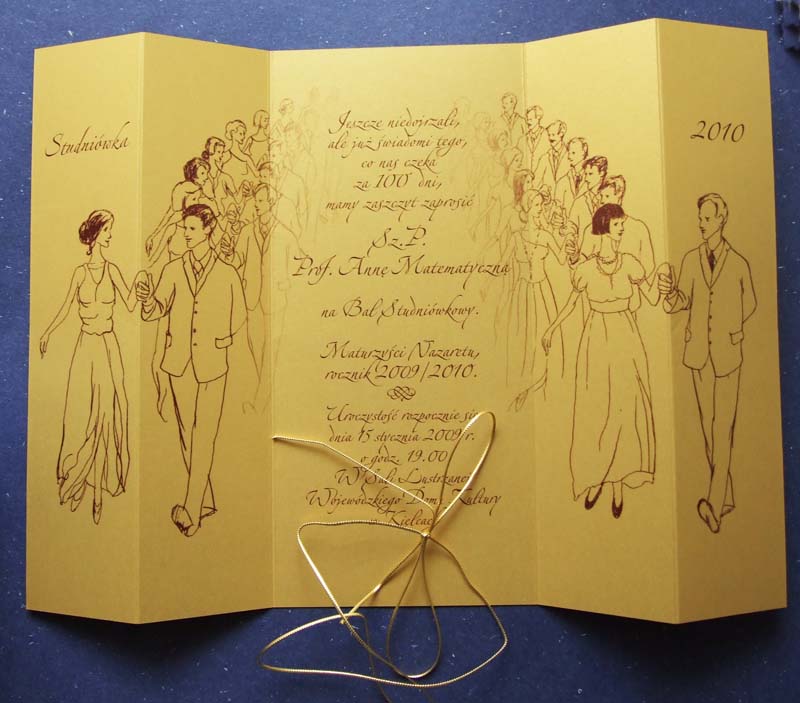 Studniówka
Jeszcze niedojrzali,
ale już świadomi tego,
co nas czeka
za 100 dni,
mamy zaszczyt zaprosić
Sz.P.
Prof. Annę Matematyczną
na Bal Studniówkowy.
Maturzyści Nazaretu,
rocznik 2009/2010.
Uroczystość rozpocznie się
dnia 15 stycznia 2009 r.
o godz. 19.00
W Sali Lustrzanej
Wojewódzkiego Domu Kultury
Kielcach
2010